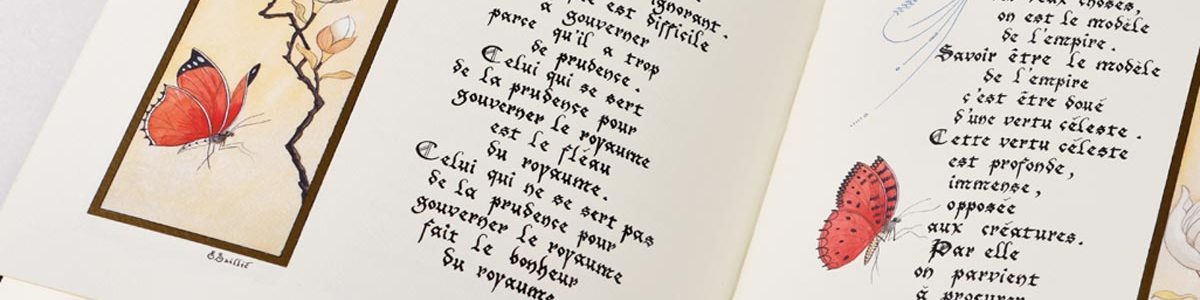 ignorant.
est difficile
à gouverner
parce qu'il a trop
de prudence.
Celui qui se sert
de la prudence pour
gouverner le royaume
est le fléau
du royaume.
Celui qui ne se sert pas
de la prudence pour
gouverner le royaume
fait le bonheur
du royaume
choses,
on est le modèle
de l'empire.
Savoir être le modèle
de l'empire
c'est être doué
d'une vertu céleste.
Cette vertu céleste
est profonde,
immense,
opposée
aux créatures.
Par elle
on parvient
à procurer